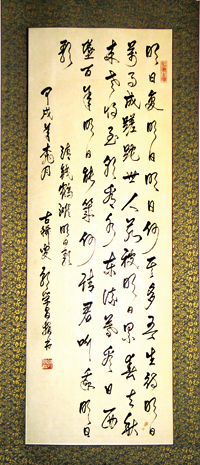 明日復明日明日何其多吾生待明日
萬事成蹉跎世人若被明日累春去秋
來老將至朝看水東流暮看日西
墜百年明日能幾何請君聽我明日
歌
錢鶴灘明日歌
甲戌年月
古稀叟